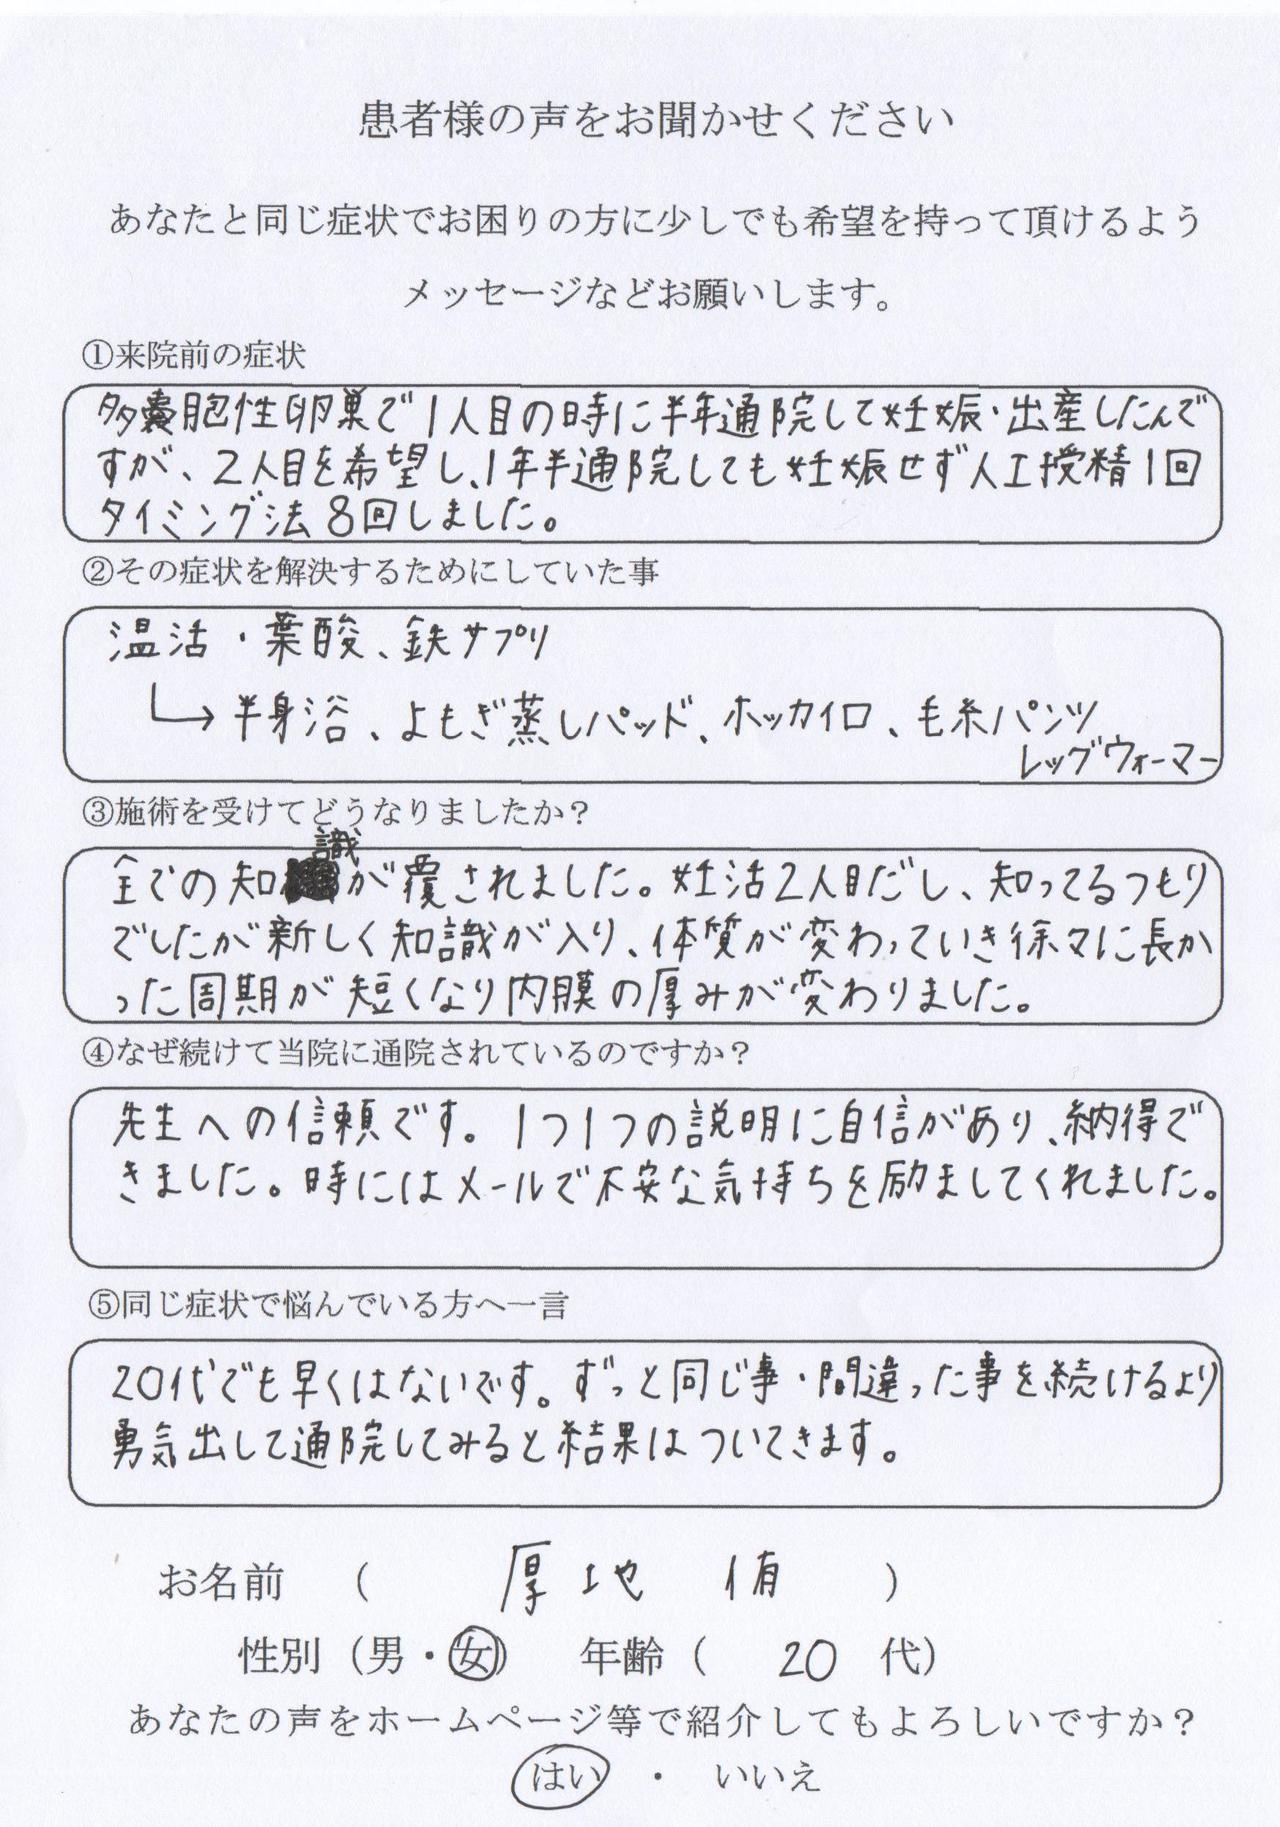 患者様の声をお聞かせください
あなたと同じ症状でお困りの方に少しでも希望を持って頂けるよう
メッセージなどお願いします。
①来院前の症状
多嚢胞性卵巣で1人目の時に半年通院して妊娠・出産したんで
すが、2人目を希望し、1年半通院しても妊娠せず人工授精1回
タイミング法8回しました。
②その症状を解決するためにしていた事
温活・葉酸、鉄サプリ
→半身浴、よもぎ蒸しパッド、ホッカイロ、毛糸パンツ
レッグウォーマー
③施術を受けてどうなりましたか？
全ての知識が覆されました。妊活2人目だし、知ってるつもり
でしたが新しく知識が入り、体質が変わっていき徐々に長か
った周期が短くなり内膜の厚みが変わりました。
④なぜ続けて当院に通院されているのですか？
先生への信頼です。1つ1つの説明に自信があり、納得で
きました。時にはメールで不安な気持ちを励ましてくれました。
⑤同じ症状で悩んでいる方へ一言
20代でも早くはないです。ずっと同じ事・間違った事を続けるより
勇気出して通院してみると結果はついてきます。
お名前 （ 厚地 侑 ）
性別（男・女） 年齢（ 20 代）
あなたの声をホームページ等で紹介してもよろしいですか？
はい ・ いいえ